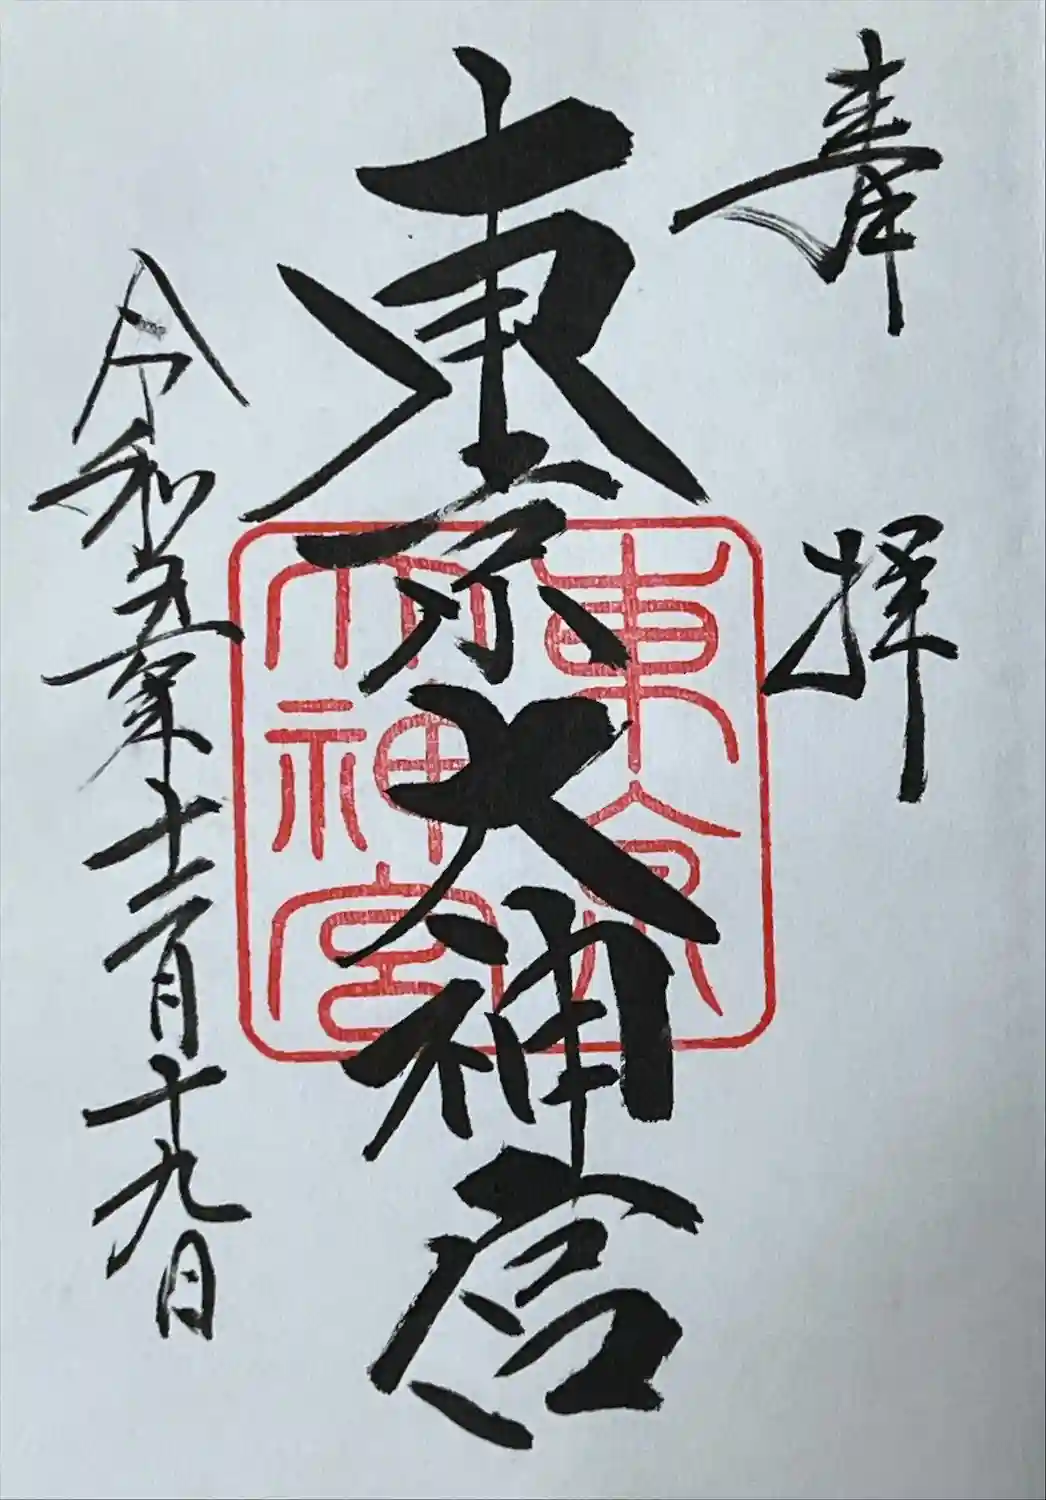 奉拝
東京大神宮
東京大神宮
令和五年十一月十九日